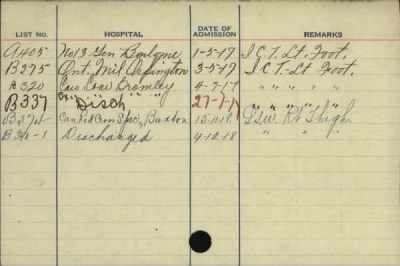 LIST No. HOSPITAL DATE OF ADMISSION REMARKS
A405 No 13 Gen Boulogne 1-5-17 I C T. Lt Foot.
B275 Ont. Mil Orpington 3-5-17 I C T. Lt Foot.
B320 Con. Bromley 4-7-17 " " " "
B337 " Disch " 27-7-17 " " " "
B374 Can Red Cross Spec, Buxton 15-11-18 Gsw. Rt Thigh.
-1 Discharged 4-12-18 " " "